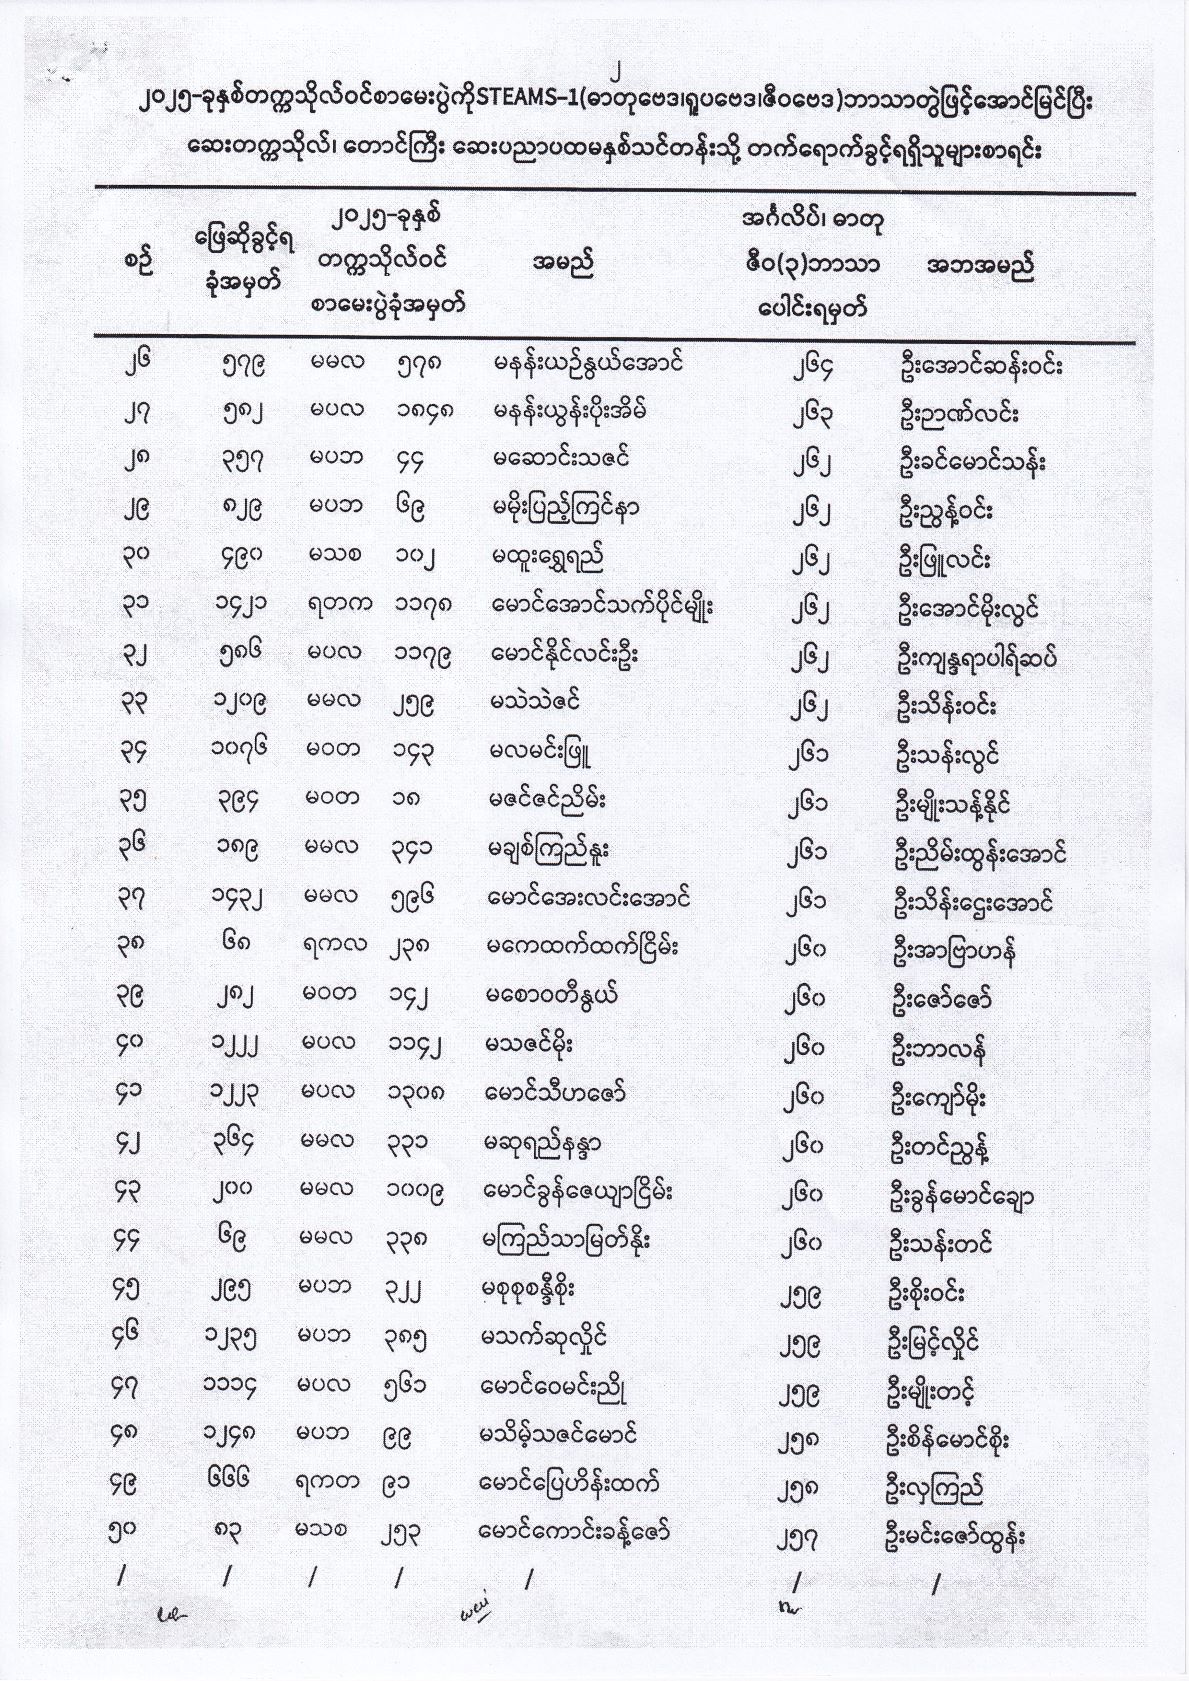 ၂
၂၀၂၅-ခုနှစ်တက္ကသိုလ်ဝင်စာမေးပွဲကိုSTEAMS-1(ဓာတုဗေဒ၊ရူပဗေဒ၊ဇီဝဗေဒ)ဘာသာတွဲဖြင့်အောင်မြင်ပြီး
ဆေးတက္ကသိုလ်၊ တောင်ကြီး ဆေးပညာပထမနှစ်သင်တန်းသို့ တက်ရောက်ခွင့်ရရှိသူများစာရင်း
စဉ် ဖြေဆိုခွင့်ရ ခုံအမှတ် ၂၀၂၅-ခုနှစ် တက္ကသိုလ်ဝင် စာမေးပွဲခုံအမှတ် အမည် အင်္ဂလိပ်၊ ဓာတု ဇီဝ(၃)ဘာသာ ပေါင်းရမှတ် အဘအမည်
၂၆ ၅၇၉ မမလ ၅၇၈ မနန်းယဉ်နွယ်အောင် ၂၆၄ ဦးအောင်ဆန်းဝင်း
၂၇ ၅၈၂ မပလ ၁၈၄၈ မနန်းယွန်းပိုးအိမ် ၂၆၃ ဦးဉာဏ်လင်း
၂၈ ၃၅၇ မပဘ ၄၄ မဆောင်းသဇင် ၂၆၂ ဦးခင်မောင်သန်း
၂၉ ၈၂၉ မပဘ ၆၉ မမိုးပြည့်ကြင်နာ ၂၆၂ ဦးညွန့်ဝင်း
၃၀ ၄၉၀ မသစ ၁၀၂ မထူးရွှေရည် ၂၆၂ ဦးဖြူလင်း
၃၁ ၁၄၂၁ ရတက ၁၁၇၈ မောင်အောင်သက်ပိုင်မျိုး ၂၆၂ ဦးအောင်မိုးလွင်
၃၂ ၅၈၆ မပလ ၁၁၇၉ မောင်နိုင်လင်းဦး ၂၆၂ ဦးကျန္ဒရာပါရ်ဆပ်
၃၃ ၁၂၀၉ မမလ ၂၅၉ မသဲသဲဇင် ၂၆၂ ဦးသိန်းဝင်း
၃၄ ၁၀၇၆ မဝတ ၁၄၃ မလမင်းဖြူ ၂၆၁ ဦးသန်းလွင်
၃၅ ၃၉၄ မဝတ ၁၈ မဇင်ဇင်ညိမ်း ၂၆၁ ဦးမျိုးသန့်နိုင်
၃၆ ၁၈၉ မမလ ၃၄၁ မချစ်ကြည်နူး ၂၆၁ ဦးညိမ်းထွန်းအောင်
၃၇ ၁၄၃၂ မမလ ၅၉၆ မောင်အေးလင်းအောင် ၂၆၁ ဦးသိန်းဌေးအောင်
၃၈ ၆၈ ရကလ ၂၃၈ မကေထက်ထက်ငြိမ်း ၂၆၀ ဦးအာဗြာဟန်
၃၉ ၂၈၂ မဝတ ၁၄၂ မစောဝတီနွယ် ၂၆၀ ဦးဇော်ဇော်
၄၀ ၁၂၂၂ မပလ ၁၁၄၂ မသဇင်မိုး ၂၆၀ ဦးဘာလန်
၄၁ ၁၂၂၃ မပလ ၁၃၀၈ မောင်သီဟဇော် ၂၆၀ ဦးကျော်မိုး
၄၂ ၃၆၄ မမလ ၃၃၁ မဆုရည်နန္ဒာ ၂၆၀ ဦးတင်ညွန့်
၄၃ ၂၀၀ မမလ ၁၀၀၉ မောင်ခွန်ဇေယျာငြိမ်း ၂၆၀ ဦးခွန်မောင်ချော
၄၄ ၆၉ မမလ ၃၃၈ မကြည်သာမြတ်နိုး ၂၆၀ ဦးသန်းတင်
၄၅ ၂၉၅ မပဘ ၃၂၂ မစုစုစန္ဒီစိုး ၂၅၉ ဦးစိုးဝင်း
၄၆ ၁၂၃၅ မပဘ ၃၈၅ မသက်ဆုလှိုင် ၂၅၉ ဦးမြင့်လှိုင်
၄၇ ၁၁၁၄ မပလ ၅၆၁ မောင်ဝေမင်းညို ၂၅၉ ဦးမျိုးတင့်
၄၈ ၁၂၄၈ မပဘ ၉၉ မသိမ့်သဇင်မောင် ၂၅၈ ဦးစိန်မောင်စိုး
၄၉ ၆၆၆ ရကတ ၉၁ မောင်ပြေဟိန်းထက် ၂၅၈ ဦးလှကြည်
၅၀ ၈၃ မသစ ၂၅၃ မောင်ကောင်းခန့်ဇော် ၂၅၇ ဦးမင်းဇော်ထွန်း
/ / / / / / /